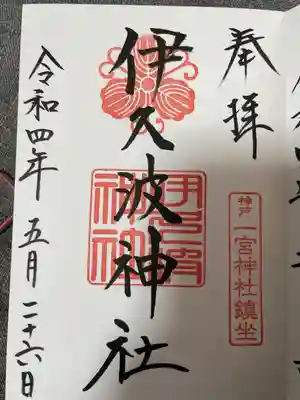 奉拝
神戸 一宮神社鎮坐
伊久波神社
令和四年 五月 二十六日